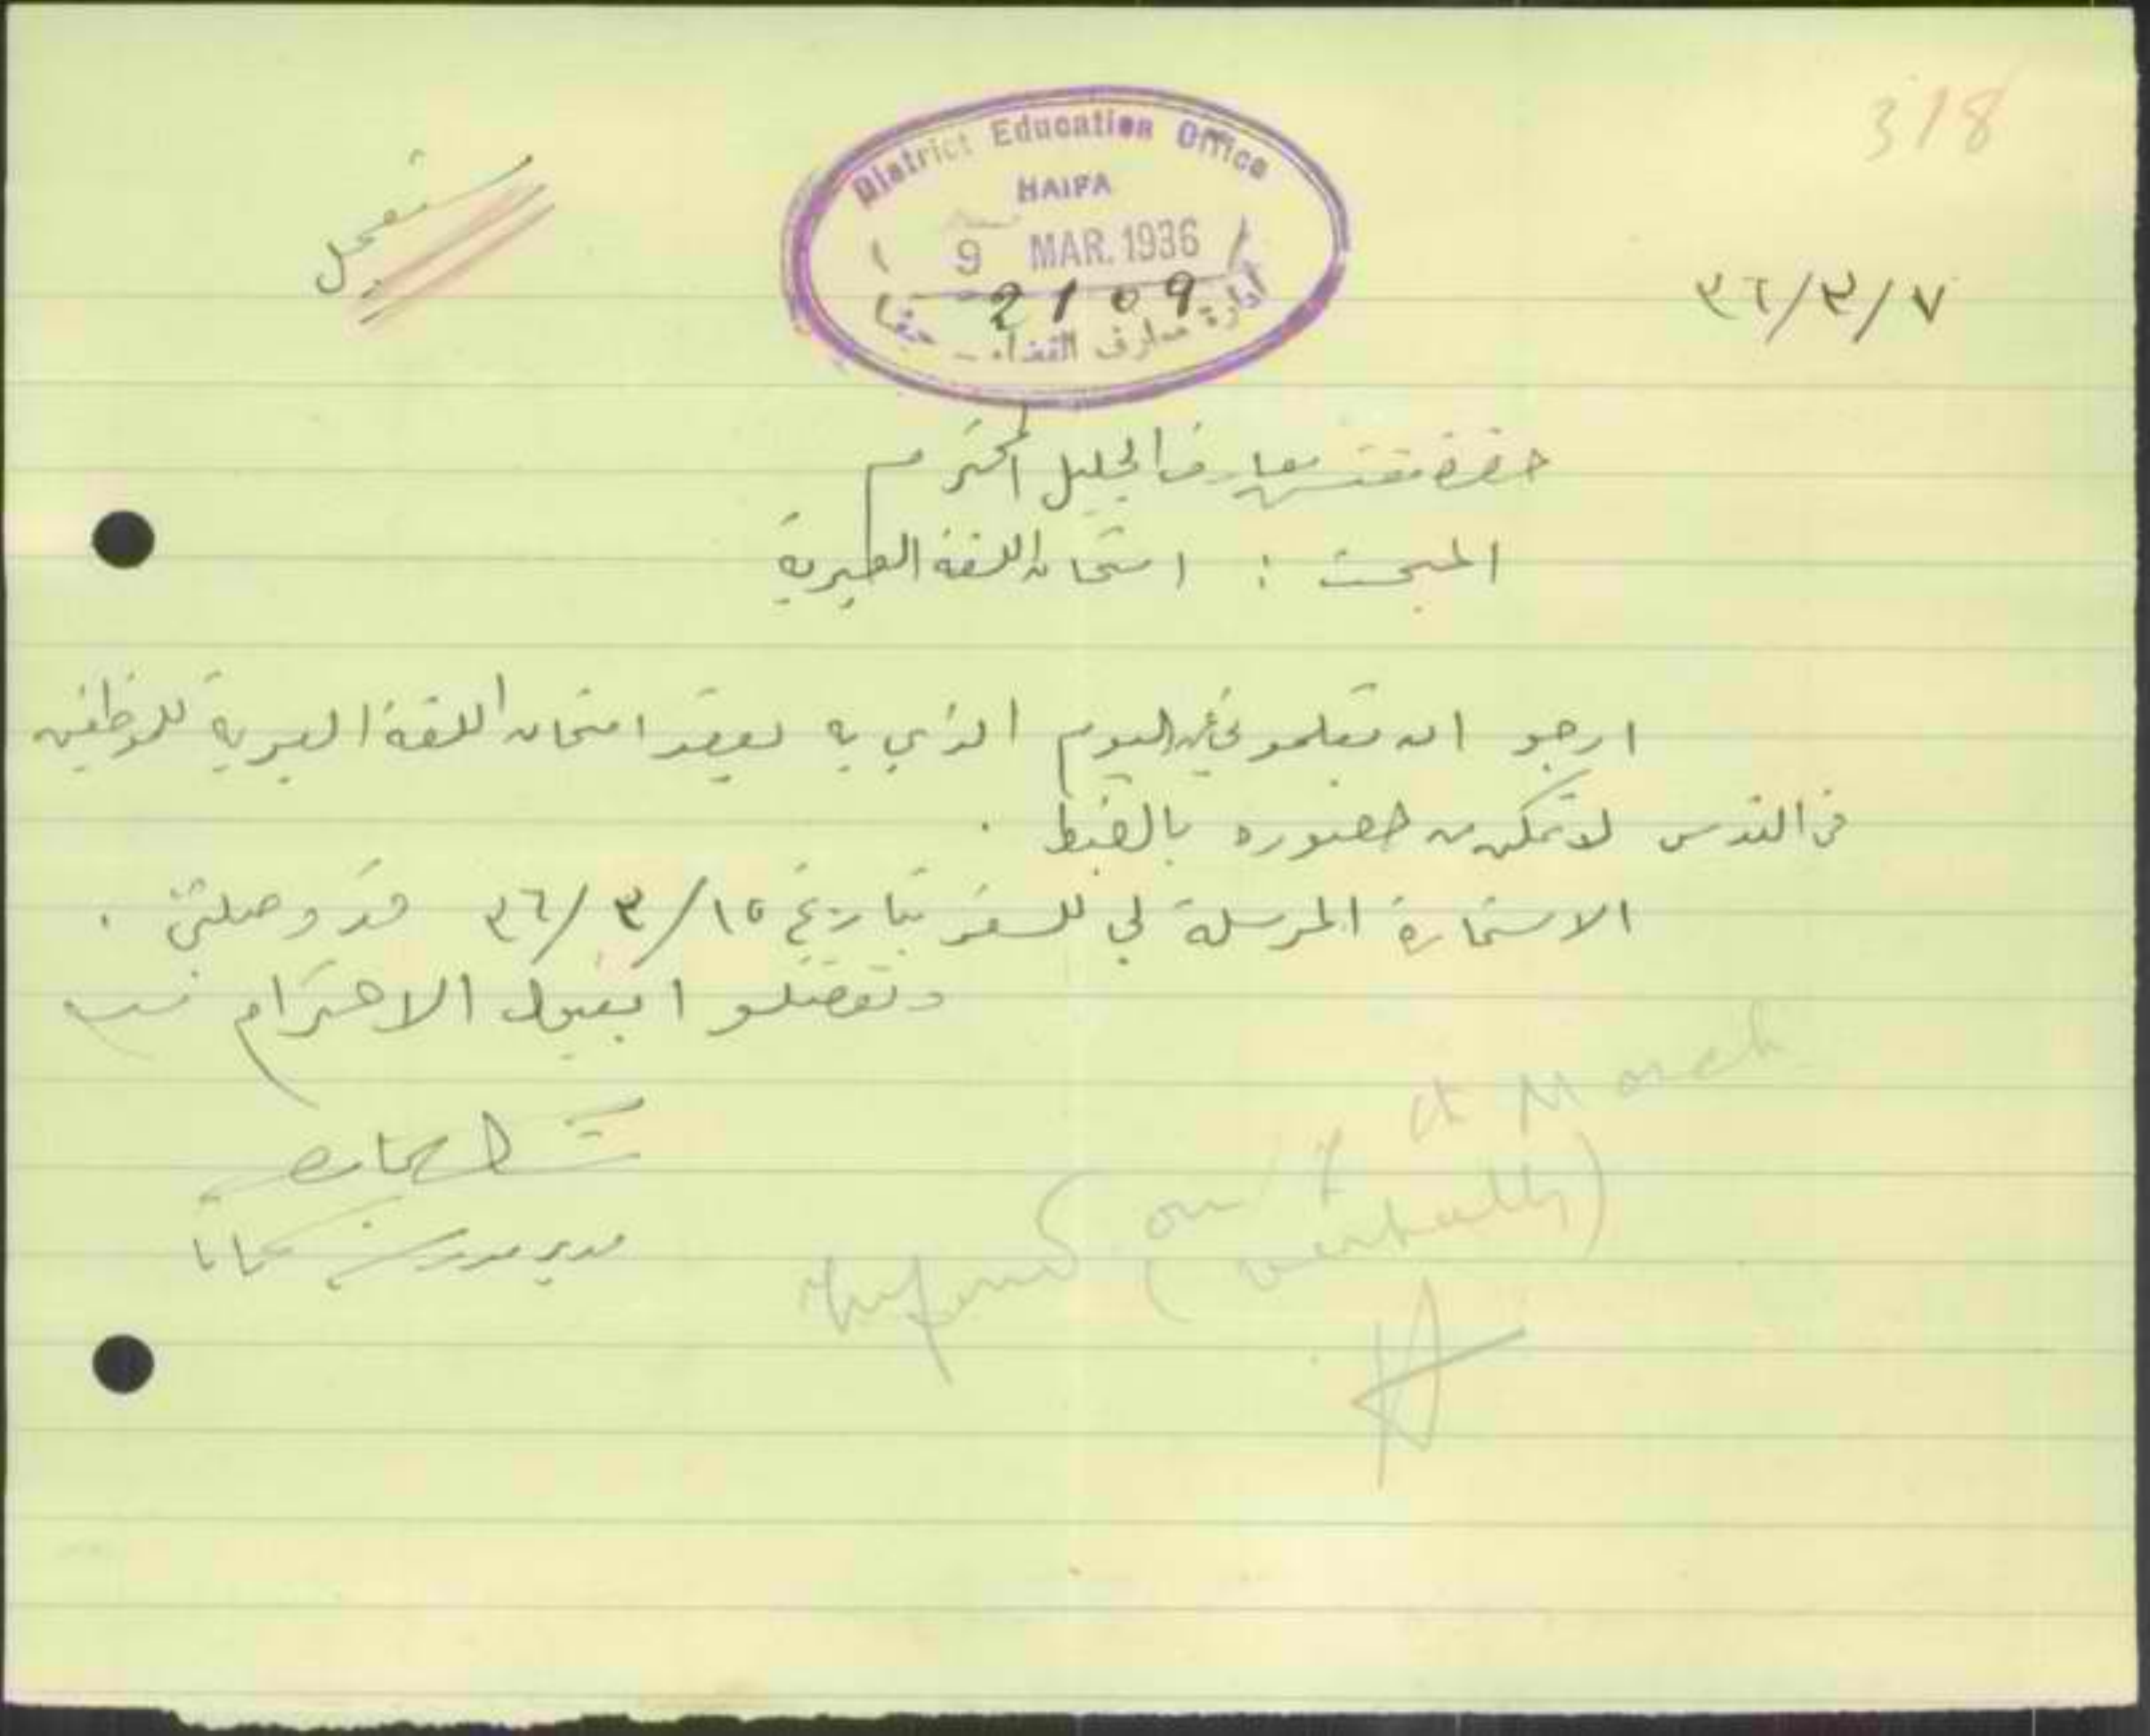 318
District Education Office
HAIFA
9 MAR. 1936
2109
ادارة معارف القضاء - حيفا
مستعجل
٣٦/٣/٧
حضرة مفتش معارف الجليل المحترم
المبحث : امتحان اللغة العبرية
ارجو ان تعلموني عن اليوم الذي به يعقد امتحان اللغة العبرية للموظفين
في القدس لاتمكن من حضوره بالضبط .
الاستمارة المرسلة لي للسفر بتاريخ ٣٦/٣/١٥ قد وصلتني .
وتفضلوا بقبول الاحترام
مدير مدرسة
on 7 th March
(verbally)